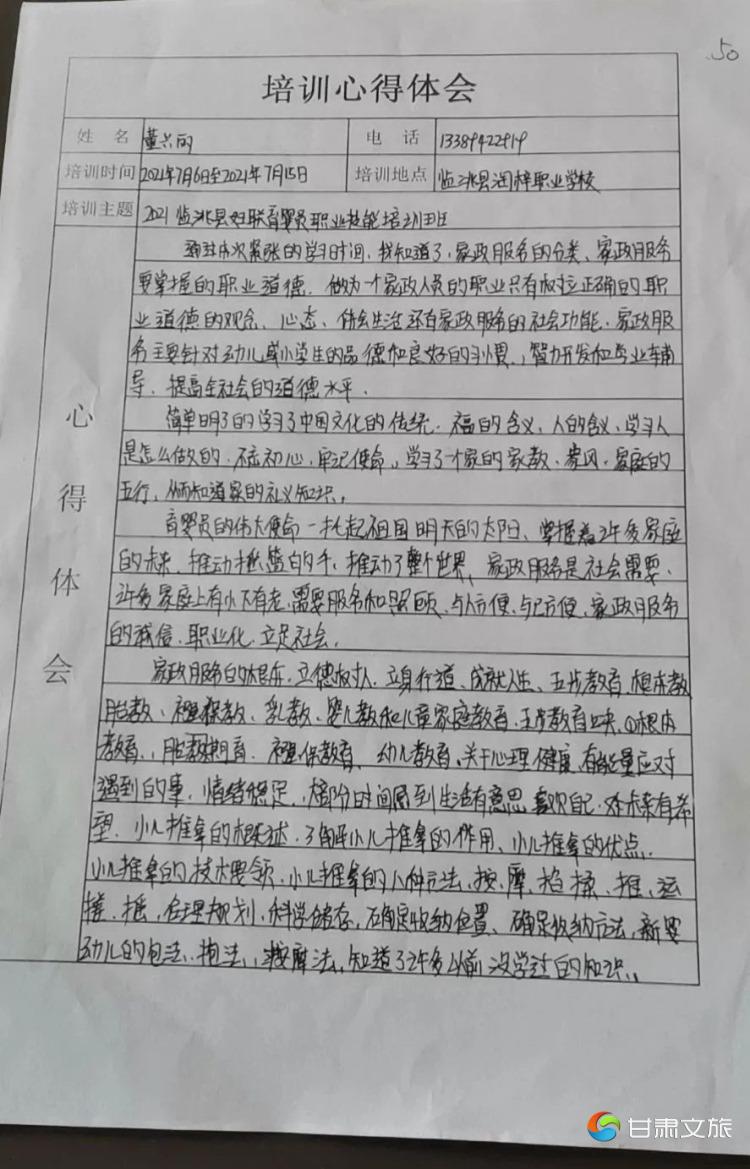 50
培训心得体会
姓名 董兴丽 电话 13389422919
培训时间 2021年7月6日至2021年7月15日 培训地点 临洮县润梓职业学校
培训主题 2021临洮县妇联育婴员职业技能培训班
心得体会
通过本次紧张的学习时间,我知道了,家政服务的分类、家政服务
要掌握的职业道德.做为一个家政人员的职业只有树立正确的职
业道德的观念、心态、体会生活还有家政服务的社会功能.家政服
务主要针对幼儿或小学生的品德和良好的习惯,智力开发和专业辅
导、提高全社会的道德水平.
简单明了的学习了中国文化的传统.福的含义,人的含义,学习人
是怎么做的.不忘初心,牢记使命,学习了一个家的家教、家风、家庭的
五行,从而知道家的礼义知识.
育婴员的伟大使命一托起祖国明天的太阳、掌握着许多家庭
的未来、推动摇篮的手,推动了整个世界、家政服务是社会需要.
许多家庭上有小下有老.需要服务和照顾、与人方便.与己方便、家政服务
的诚信.职业化.立足社会.
家政服务的根本.立德树人.立身行道、成就人生、五步教育.根本教
胎教、襁褓教、乳教、婴儿教和儿童家庭教育.五步教育口决.①根本
教育,胎教期育.襁保教育、幼儿教育.关于心理健康,有能量应对
遇到的事.情绪稳定,大部分时间感到生活有意思.喜欢自己.对未来有希
望.小儿推拿的概述.了解小儿推拿的作用、小儿推拿的优点.
小儿推拿的技术要领.小儿推拿的八种方法、按、摩、掐、揉、推、运
搓、摇,合理规划.科学储存,确定收纳位置、确定收纳方法,新婴
幼儿的包法.抱法,按摩法,知道了许多以前没学过的知识.
甘肃文旅